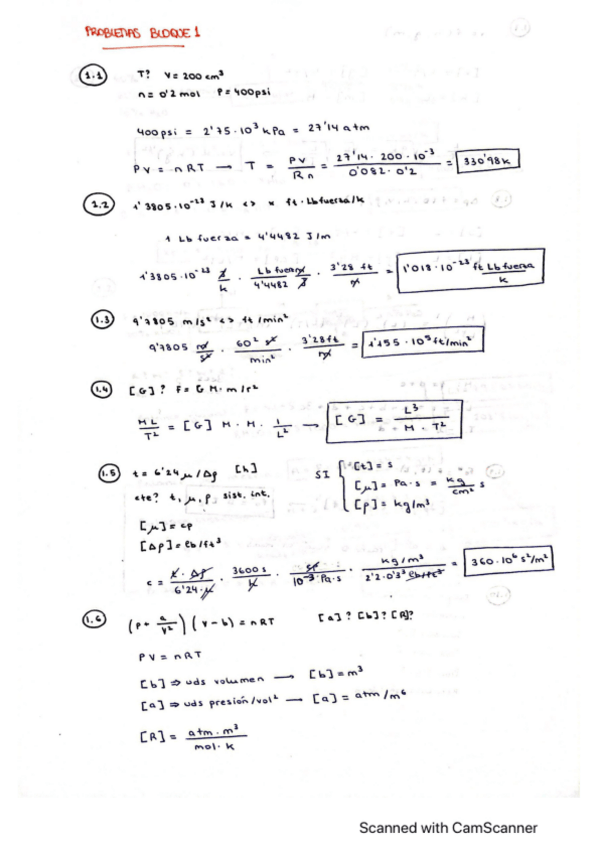 PROBLEMAS BLOQUE 1
1.1 T? V = 200 cm³
n = 0'2 mol P = 400 psi
400 psi = 2'75·10³ kPa = 27'14 atm
PV = nRT → T = PV / Rn = 27'14 · 200 · 10⁻³ / 0'082 · 0'2 = 330'98 k
1.2 1'3805·10⁻²³ J/k <> x ft·Lbfuerza/k
1 Lb fuerza = 4'4482 J/m
1'3805·10⁻²³ J/k · Lb fuerza/4'4482 J · 3'28 ft/m = 1'018·10⁻²³ ft Lb fuerza / k
1.3 9'7805 m/s² <> ft/min²
9'7805 m/s² · 60² s²/min² · 3'28 ft/m = 1'155·10⁵ ft/min²
1.4 [G]? F = G M·m/r²
ML/T² = [G] M·M·1/L² → [G] = L³/M·T²
1.5 t = 6'24 μ/Δρ [h]
cte? t, μ, ρ, sist. int.
SI { [t] = s
[μ] = Pa·s = kg/cm² s
[ρ] = kg/m³
[μ] = cp
[Δρ] = lb/ft³
c = t·Δρ/6'24·μ · 3600 s/h · cp/10⁻³·Pa·s · kg/m³ / 2'2·0'3³ lb/ft³ = 360·10⁶ s²/m²
1.6 (P + a/V²)(V-b) = nRT [a]? [b]? [R]?
PV = nRT
[b] ⇒ uds volumen → [b] = m³
[a] ⇒ uds presión/vol² → [a] = atm/m⁶
[R] = atm·m³ / mol·k
Scanned with CamScanner